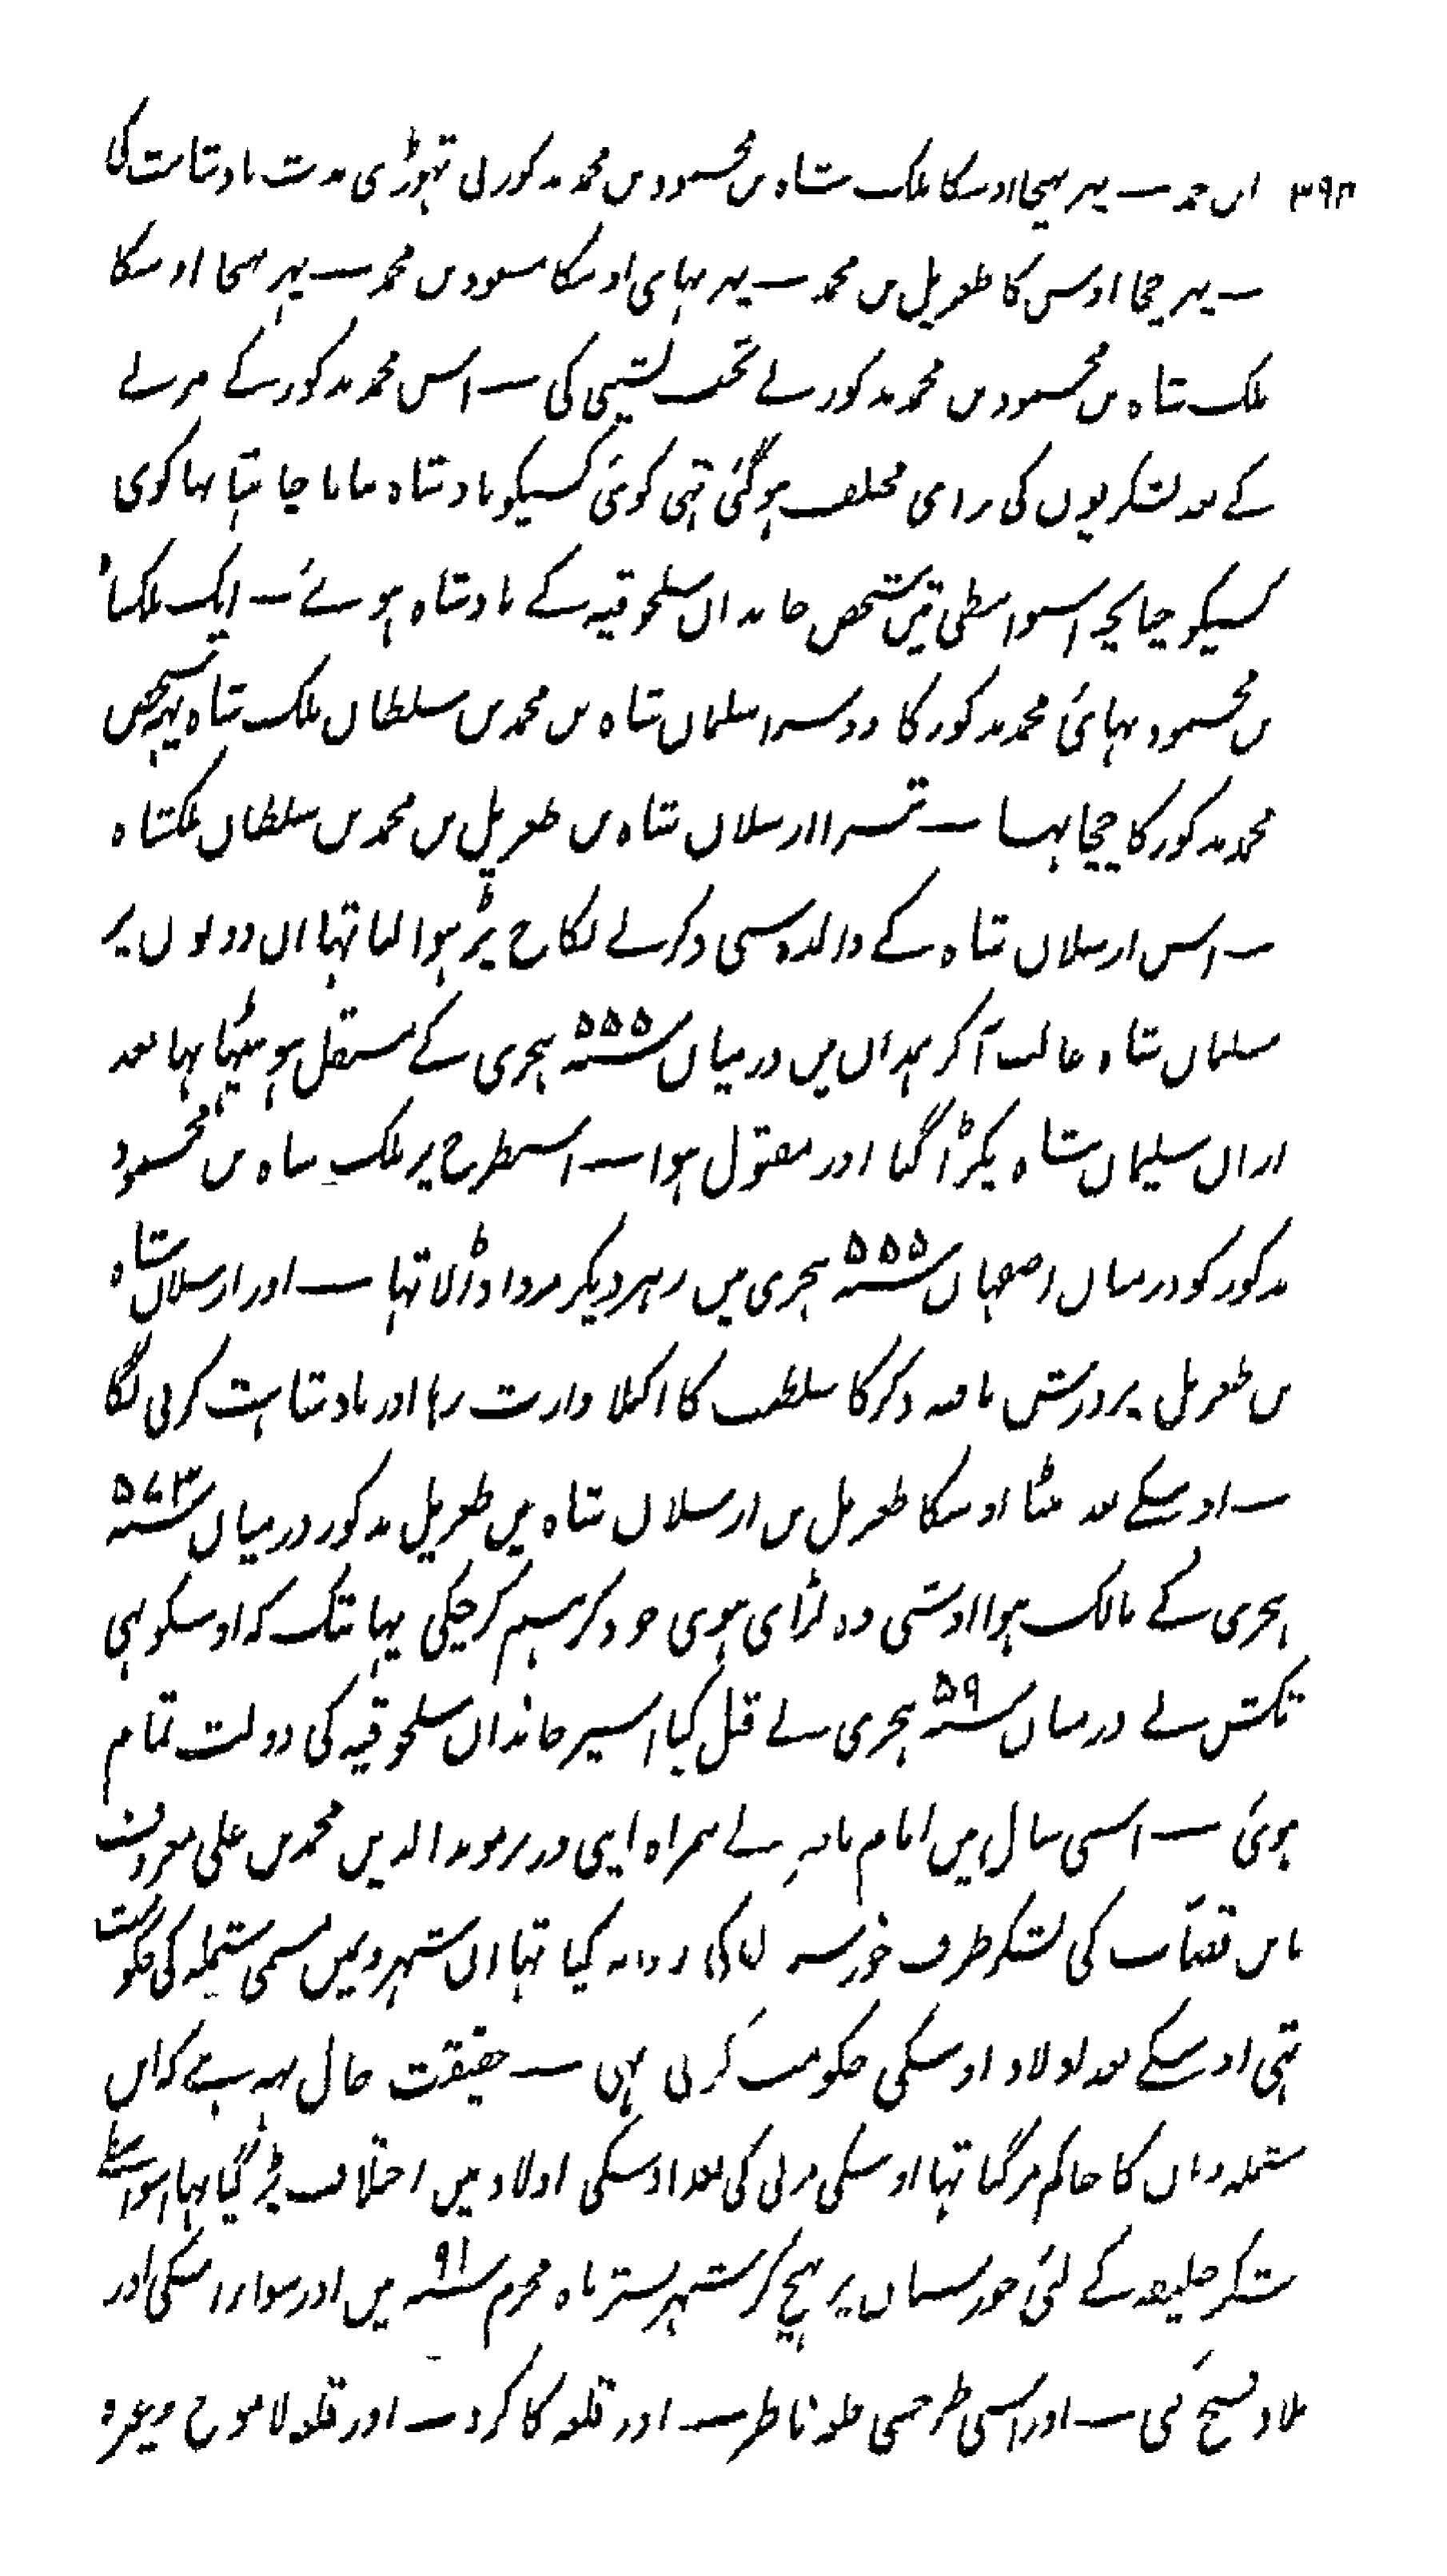 ۳۹۸ ابن محمد ــ پھر بھیجا اوسکا ملک شاہ بن محمود بن محمد مذکور نی تہوڑی مدت بادشاہت کی
ــ پھر چچا اوس کا طغریل بن محمد ــ پھر بہای اوسکا مسعود بن محمد ــ پہر بھیجا اوسکا
ملک شاہ بن محمود بن محمد مذکور نے تخت نشینی کی ــ اس محمد مذکور کے مرنے
کے بعد لشکریوں کی رای مختلف ہوگئی تہی کوئی کسیکو بادشاہ بنانا چاہتا تہا کوی
کسیکو چنانچہ اسواسطی تین شخص خاندان سلجوقیہ کے بادشاہ ہوئے ــ ایک ملکشاہ
بن محمود بہائی محمد مذکور کا دوسرا سلیمان شاہ بن محمد بن سلطان ملک شاہ یہہ شخص
محمد مذکور کا چچا تہا ــ تیسرا ارسلان شاہ بن طغریل بن محمد بن سلطان ملکشاہ
ــ اس ارسلان شاہ کے والدہ سی دکزنے نکاح پڑہوا لیا تہا ان دونوں پر
سلیمان شاہ غالب آکر ہمدان میں درمیان سنہ ۵۵۵ ہجری کے مستقل ہو بیٹہا تہا بعد
ازاں سلیمان شاہ پکڑا گیا اور مقتول ہوا ــ اسطرح پر ملک شاہ بن محمود
مذکور کو درمیان اصفہان سنہ ۵۵۵ ہجری میں زہر دیکر مروا ڈالا تہا ــ اور ارسلان شاہ
بن طغریل پرورش یافتہ دکز کا سلطنت کا اکیلا وارث رہا اور بادشاہت کرنی لگا
ــ اوسکے بعد بیٹا اوسکا طغریل بن ارسلان شاہ بن طغریل مذکور درمیان سنہ ۵۷۳
ہجری کے مالک ہوا اوستی وہ لڑای ہوی جو ذکر ہم کرچکی یہانتک کہ اوسکو بہی
تکش نے درمیان سنہ ۵۹ ہجری نے قتل کیا اسپر خاندان سلجوقیہ کی دولت تمام
ہوئی ــ اسی سال میں امام ناصر نے ہمراہ اپنی وزیر موید الدین محمد بن علی معروف
بابن قصاب کی لشکر طرف خوزستان کی روانہ کیا تہا ان شہرو میں مسمی شملہ کی حکومت
تہی اوسکے بعد اولاد اوسکی حکومت کرتی تہی ــ حقیقت حال یہہ ہے کہ ابن
شملہ وہاں کا حاکم مرگیا تہا اوسکی مرنی کی بعد اوسکی اولاد میں اختلاف پڑگیا تہا اسواسطے
لشکر خلیفہ کے لئی خوزستان پر پہنچکر شہر تستر ماہ محرم سنہ ۹۱ میں اور سواد اسکی اور
بلاد فتح کی ــ اور اسی طرحسی قلعہ ناظر ــ اور قلعہ کاکرد ــ اور قلعہ لاموج وغیرہ